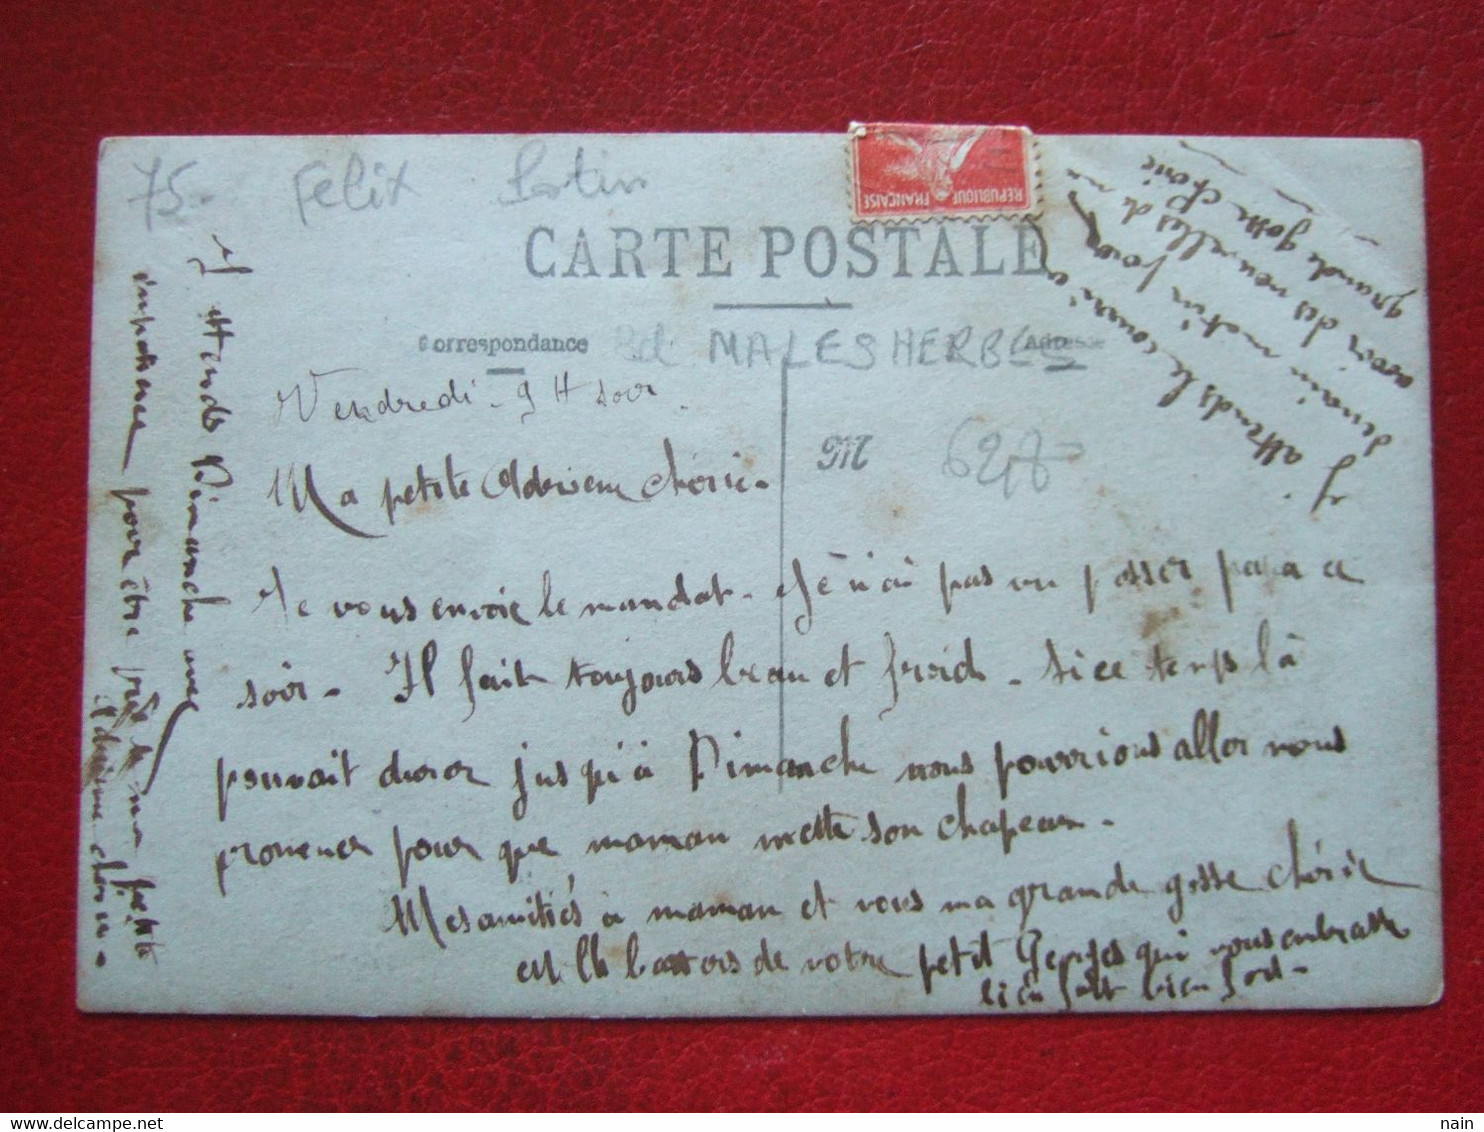 75- Felix Potin
REPUBLIQUE FRANÇAISE
CARTE POSTALE
Correspondance
Bd MALESHERBES
Adresse
M
Vendredi - 9 H soir.
Ma petite Adrienne chérie.
Je vous envoie le mandat. Je n'ai pas vu passer papa ce
soir. Il fait toujours beau et froid. Si ce temps là
pouvait durer jusqu'à Dimanche nous pourrions aller nous
promener pour que maman mette son chapeau.
Mes amitiés à maman et vous ma grande gosse chérie
de votre petit Georges qui vous embrasse
bien fort bien fort.
J'attends Dimanche avec
impatience pour être près de ma petite
Adrienne chérie.
J'attends le courrier
demain matin pour
avoir des nouvelles de ma
grande gosse chérie
nain